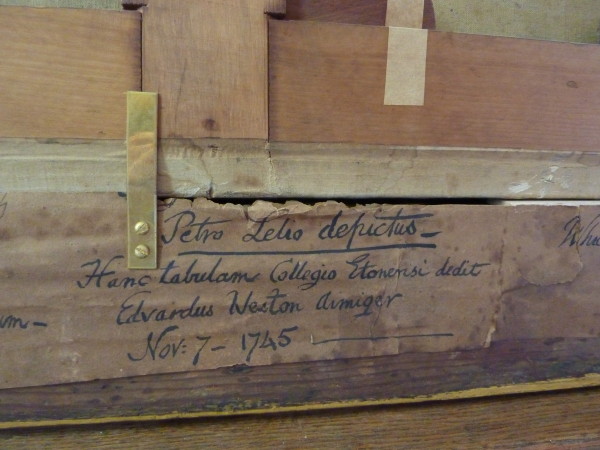 Petro Lelio depictus-
Hanc tabulam Collegio Etonensi dedit
Edvardus Weston Armiger
Nov: 7- 1745